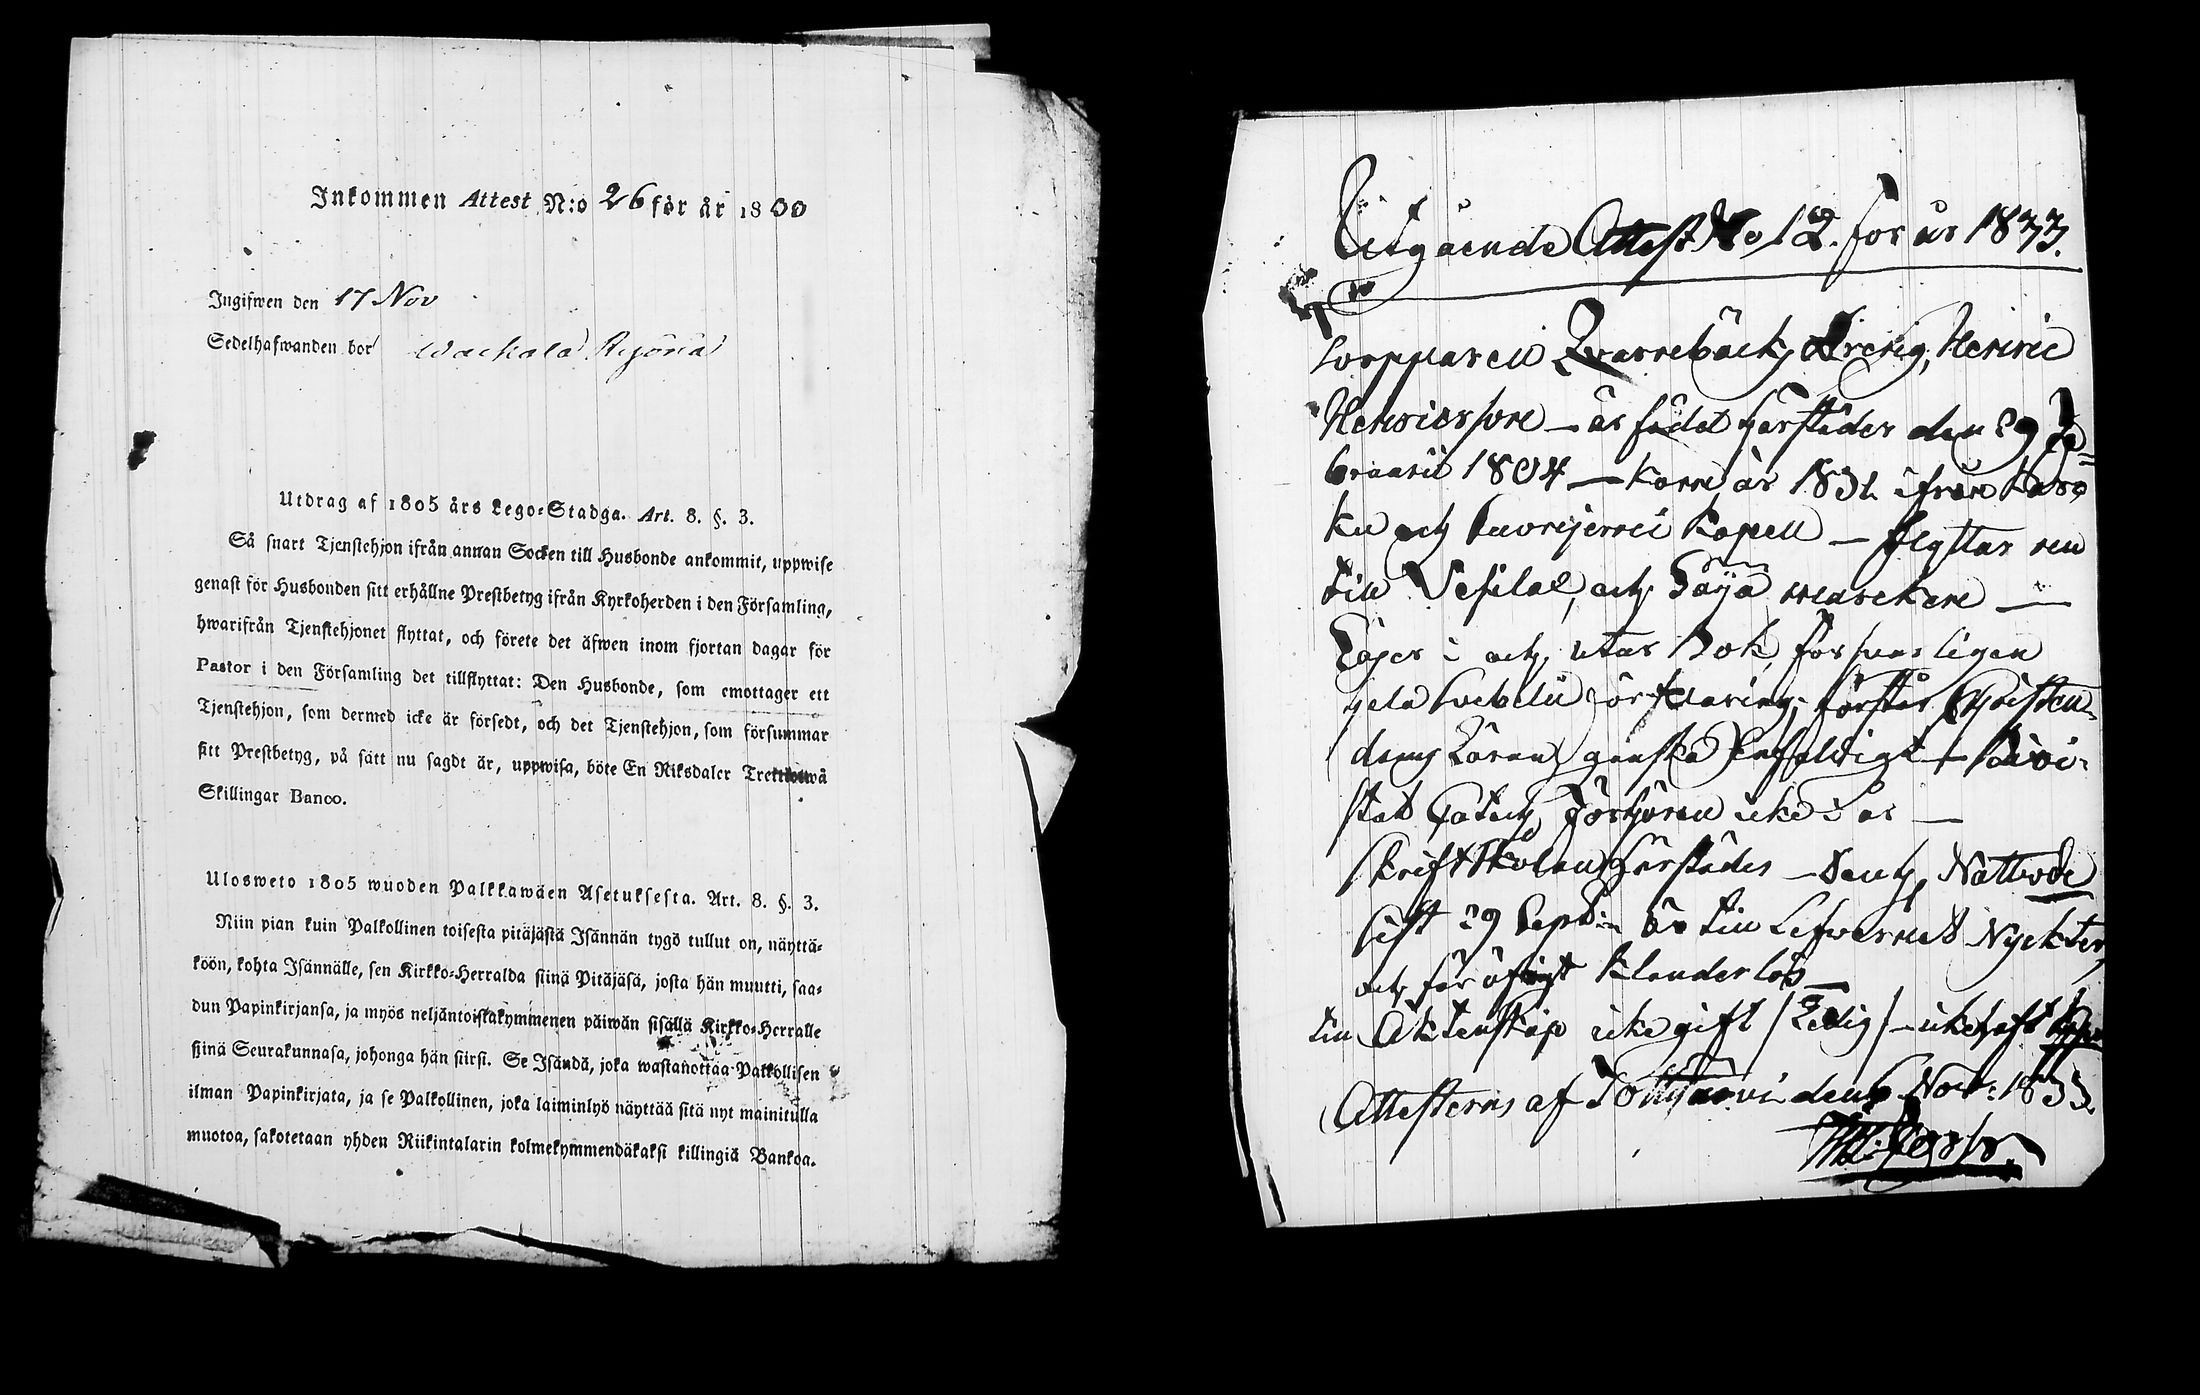 Inkommen Attest N:o 26 för år 1833
Ingifwen den 17 Nov
Sedelhafwanden bor
Utdrag af 1805 års Lego-Stadga. Art. 8. §. 3.
Så snart Tjenstehjon ifrån annan Socken till Husbonde ankommit, uppwise
genast för Husbonden sitt erhållne Prestbetyg ifrån Kyrkoherden i den Församling,
hwarifrån Tjenstehjonet flyttat, och förete det äfwen inom fjortan dagar för
Pastor i den Församling det tillflyttat: Den Husbonde, som emottager ett
Tjenstehjon, som dermed icke är försedt, och det Tjenstehjon, som försummar
sitt Prestbetyg, på sätt nu sagdt är, uppwisa, böte En Riksdaler Trettiotwå
Skillingar Banco.
Ulosweto 1805 wuoden Palkkawäen Asetuksesta. Art. 8. §. 3.
Niin pian kuin Palkollinen toisesta pitäjästä Isännän tygö tullut on, näyttä-
köön, kohta Isännälle, sen Kirkko-Herralda siinä Pitäjäsä, josta hän muutti, saa-
dun Papinkirjansa, ja myös neljäntoistakymmenen päiwän sisällä Kirkko-Herralle
siinä Seurakunnasa, johonga hän siirsi. Se Isändä, joka wastanottaa Palkollisen
ilman Papinkirjata, ja se Palkollinen, joka laiminlyö näyttää sitä nyt mainitulla
muotoa, sakotetaan yhden Riikintalarin kolmekymmendäkaksi killingiä Bankoa.
Utgående Attest No 12. för år 1833.
Henric
Henricsson – är född härstädes den 29 Fe=
bruarii 1804 – kom år 1831 ifrån
och Kapell – flyttar nu
till Vesilax, och
Läser i och utur Bok försvarligen
hela förklaring; förstår Christen-
doms Läran ganska enfaldigt – bevi-
stat och Förhören icke i år –
Skriftskolan härstädes – och Nattvarde
sist 29 Sept: är till Lefvernet Nykter
och för öfrigt klanderlös –
till Äktenskap icke gift /Ledig/ –
Attesteras af Tottijärvi den 6 Nov: 1833.